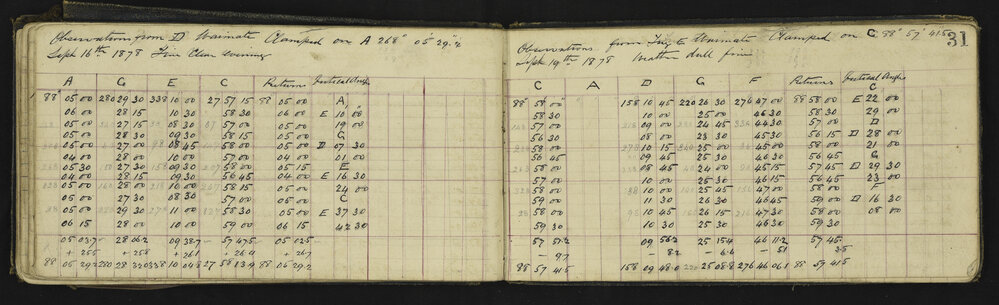 Observations from D Waimate Clamped on A 268° 05' 29".2
Sept 16th 1878 Fine Clear evening
A G E C Return Vertical Angles
88° 05 00 280 29 30 338 10 00 27 57 15 88 05 00 A
06 00 28 15 10 30 58 30 06 00 E 10 00
05 00 27 15 08 30 57 00 05 00 19 00
05 00 28 30 09 30 58 15 05 00 G
05 00 27 00 08 45 58 00 05 00 D 07 30
04 00 28 00 10 00 57 00 04 00 01 00
05 30 27 30 09 30 58 00 05 15 E
04 00 28 15 09 30 56 45 04 00 E 16 30
05 00 28 00 10 00 58 15 05 00 24 00
05 00 27 30 08 30 57 00 05 00 C
05 00 29 30 11 00 58 30 05 00 E 37 30
06 15 28 00 10 00 59 00 06 15 42 30
05 03.7 28 06.2 09 38.7 57 47.5 05 02.5
+ 25.5 + 25.8 + 26.1 + 26.4 + 26.7
88 05 29.2 280 28 32.0 338 10 04.8 27 58 13.9 88 05 29.2
Observations from Trig E Waimate Clamped on C 88° 57' 41.5 31
Sept 19th 1878 Weather dull fine
C A D G F Returns Vertical Angles
C
88° 58 00 158 10 45 220 26 30 276 47 00 88 58 00 E 22 00
58 30 10 00 25 00 46 30 58 30 29 00
57 00 09 00 24 45 44 30 57 00 D
56 30 08 00 23 30 45 30 56 15 D 28 00
58 00 10 15 25 00 45 00 58 00 21 00
56 45 09 45 25 30 46 30 56 45 G
58 00 08 45 24 00 45 15 57 45 D 29 30
57 00 10 00 25 30 46 15 56 45 23 00
58 00 10 00 25 30 47 00 58 00 F
59 00 11 30 26 30 46 45 59 00 D 16 30
58 00 10 45 26 15 47 30 58 00 08 00
59 30 10 30 26 30 46 30 59 30
57 51.2 09 56.2 25 15.4 46 11.2 57 45
— 9.7 — 8.2 — 6.6 — 5.1 3.5
88 57 41.5 158 09 48.0 220 25 08.8 276 46 06.1 88 57 41.5